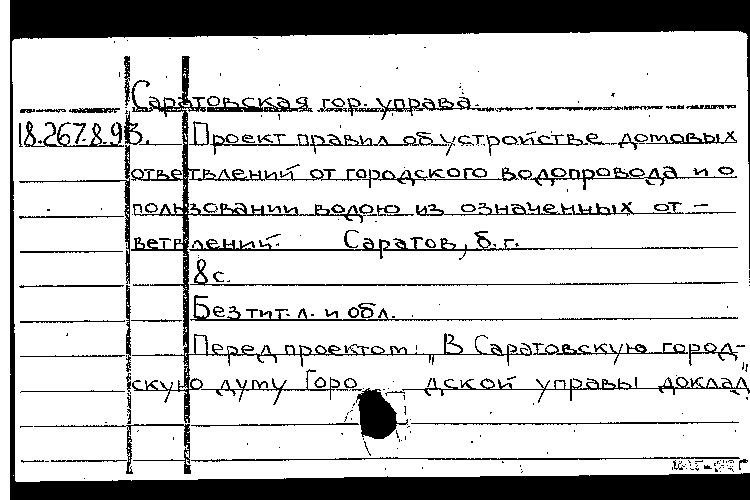 Саратовская гор. управа.
18.267.8.93. Проект правил об устройстве домовых
ответвлений от городского водопровода и о
пользовании водою из означенных от-
ветвлений. Саратов, б.г.
8 с.
Без тит. л. и обл.
Перед проектом: „В Саратовскую город-
скую думу Городской управы доклад"